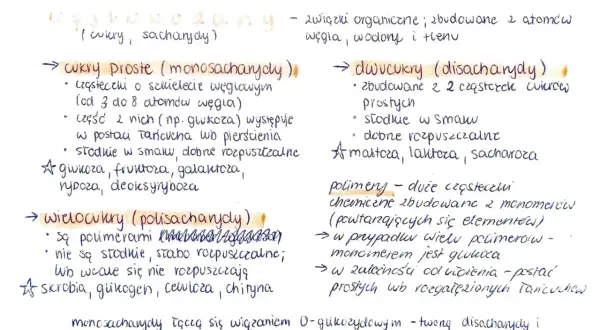 węglowodany – związki organiczne; zbudowane z atomów
(cukry, sacharydy) węgla, wodoru i tlenu
→ cukry proste (monosacharydy)
• cząsteczki o szkielecie węglowym
(od 3 do 8 atomów węgla)
• część z nich (np. glukoza) występuje
w postaci łańcucha lub pierścienia
• słodkie w smaku, dobrze rozpuszczalne
☆ glukoza, fruktoza, galaktoza,
ryboza, deoksyryboza
→ wielocukry (polisacharydy)
• są polimerami
• nie są słodkie, słabo rozpuszczalne;
lub wcale się nie rozpuszczają
☆ skrobia, glikogen, celuloza, chityna
→ dwucukry (disacharydy)
• zbudowane z 2 cząsteczek cukrów
prostych
• słodkie w smaku
• dobrze rozpuszczalne
☆ maltoza, laktoza, sacharoza
polimery – duże cząsteczki
chemiczne zbudowane z monomerów
(powtarzających się elementów)
→ w przypadku wielu polimerów –
monomerem jest glukoza
→ w zależności od ułożenia – postać
prostych lub rozgałęzionych łańcuchów
monosacharydy łączą się wiązaniem O-glikozydowym – tworzą disacharydy i